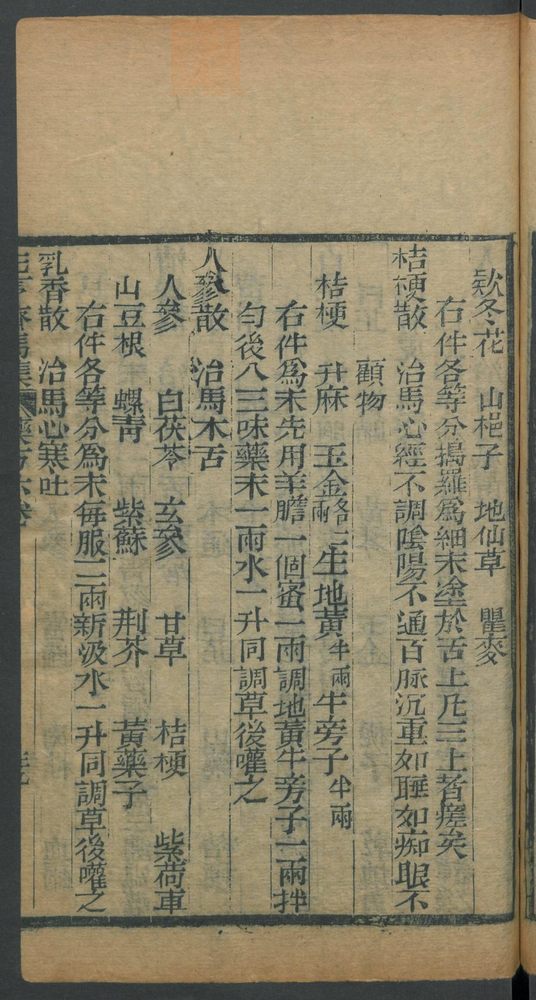 欵冬花 山梔子 地仙草 瞿麥
右件各等分搗羅爲細末塗於舌上凡三上者瘥矣
桔梗散 治馬心經不調陰陽不通百脉沉重如睡如痴眼不
顧物
桔梗 升麻 玉金各一兩 生地黃半兩 牛旁子半兩
右件爲末先用羊膽一個蜜一兩調地黃牛旁子一兩拌
勻後入三味藥末一兩水一升同調草後嚾之
人參散 治馬木舌
人參 白茯苓 玄參 甘草 桔梗 紫荷車
山豆根 螺青 紫蘇 荆芥 黃藥子
右件各等分爲末每服二兩新汲水一升同調草後嚾之
乳香散 治馬心寒吐